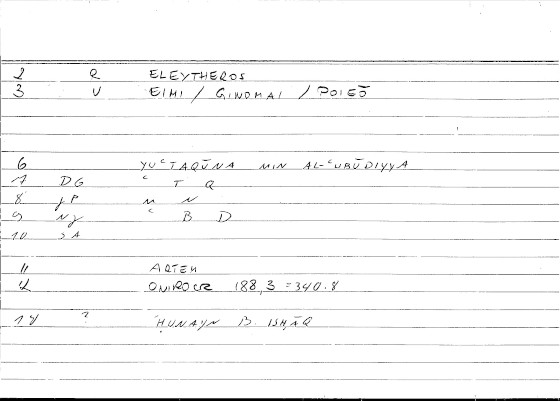 2 R ELEYTHEROS
3 V EIMI / GINOMAI / POIEŌ
6 YUʿTAQŪNA MIN AL-ʿUBŪDIYYA
7 DG ʿ T Q
8 JP M N
9 NJ ʿ B D
10 SA
11 ARTEM
12 ONIROCR 188,3 = 340.8
14 ? ḤUNAYN B. ISḤĀQ